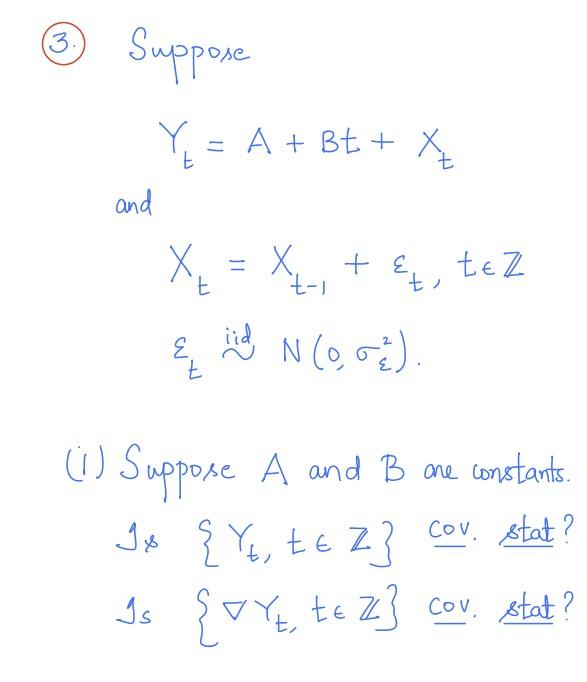 3. Suppose
Y_t = A + Bt + X_t
and
X_t = X_{t-1} + ε_t, t ∈ ℤ
ε_t iid ~ N(0, σ_ε^2).
(i) Suppose A and B are constants.
Is {Y_t, t ∈ ℤ} cov. stat?
Is {∇Y_t, t ∈ ℤ} cov. stat?